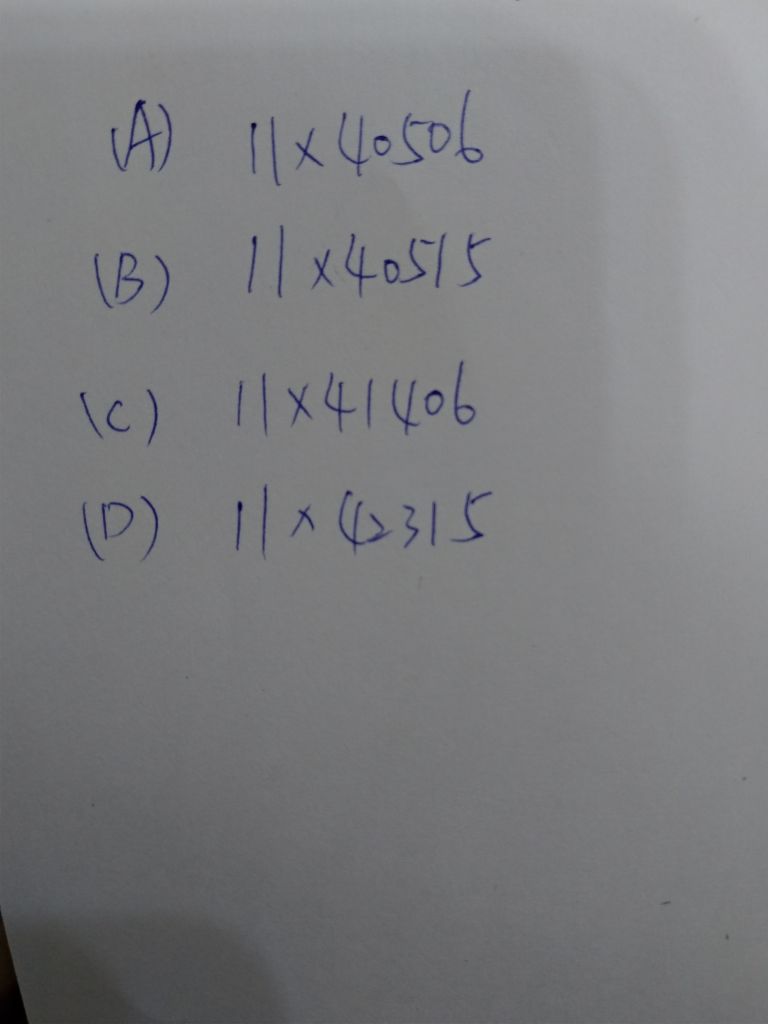 (A) 11×40506
(B) 11×40515
(C) 11×41406
(D) 11×42315